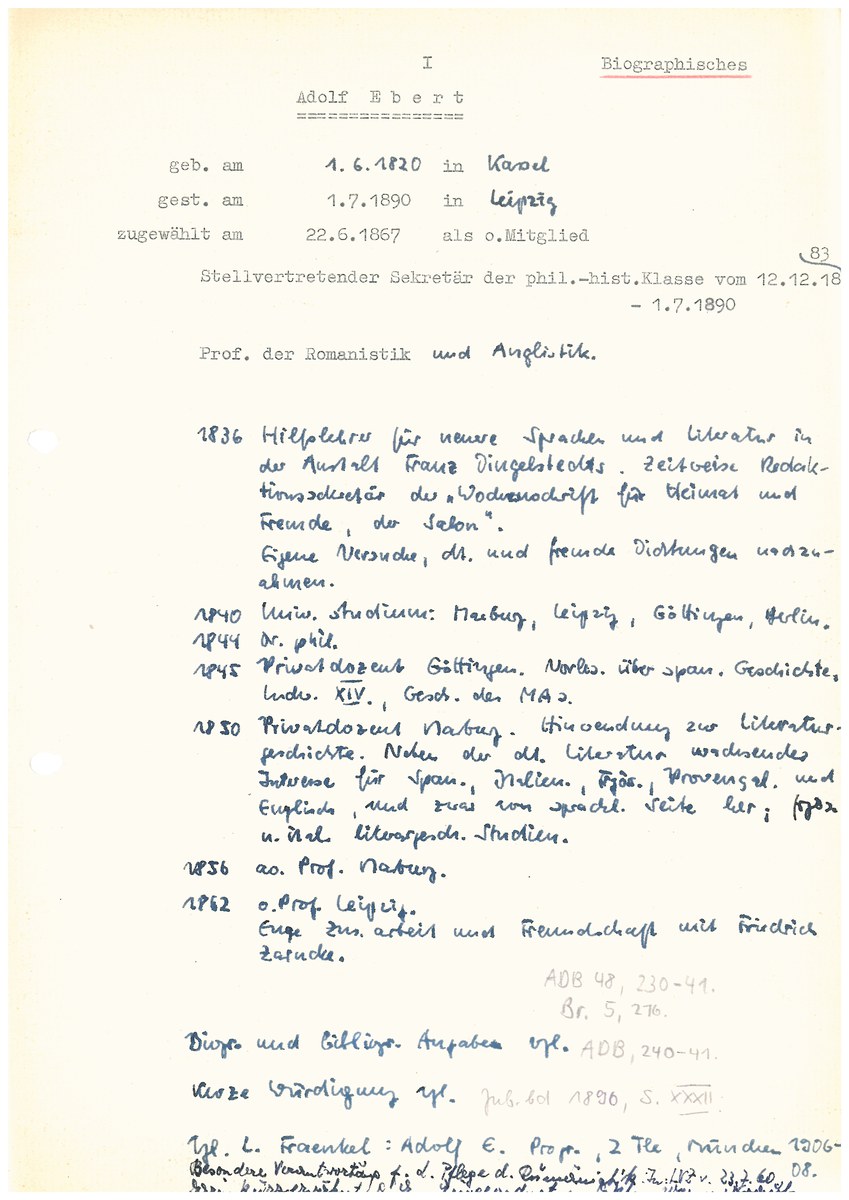 I Biographisches
Adolf Ebert
geb. am 1.6.1820 in Kassel
gest. am 1.7.1890 in Leipzig
zugewählt am 22.6.1867 als o.Mitglied
83
Stellvertretender Sekretär der phil.-hist.Klasse vom 12.12.18
- 1.7.1890
Prof. der Romanistik und Anglistik.
1836 Hilfslehrer für neuere Sprachen und Literatur in
der Anstalt Franz Dingelstedts. Zeitweise Redak-
tionssekretär der „Wochenschrift für Heimat und
Fremde, der Salon".
Eigene Versuche, dt. und fremde Dichtungen nachzu-
ahmen.
1840 Univ. studium: Marburg, Leipzig, Göttingen, Berlin.
1844 Dr. phil.
1845 Privatdozent Göttingen. Vorles. über span. Geschichte,
Ludw. XIV., Gesch. des MAs.
1850 Privatdozent Marburg. Hinwendung zur Literatur-
geschichte. Neben der dt. Literatur wachsendes
Interesse für Span., Italien., Frzös., Provençal. und
Englisch, und zwar von sprachl. Seite her; frzös
u. ital. literargesch. Studien.
1856 ao. Prof. Marburg.
1862 o.Prof. Leipzig.
Enge Zus.arbeit und Freundschaft mit Friedrich
Zarncke.
ADB 48, 230-41.
Br. 5, 276.
Biogr. und bibliogr. Angaben vgl. ADB, 240-41.
Kurze Würdigung vgl. Jub.bd 1890, S. XXXII.
Vgl. L. Fraenkel: Adolf E. Progr., 2 Tle, München 1906-
08.
Besondere f. d. Pflege d. In: LVZ v. 23.7.60